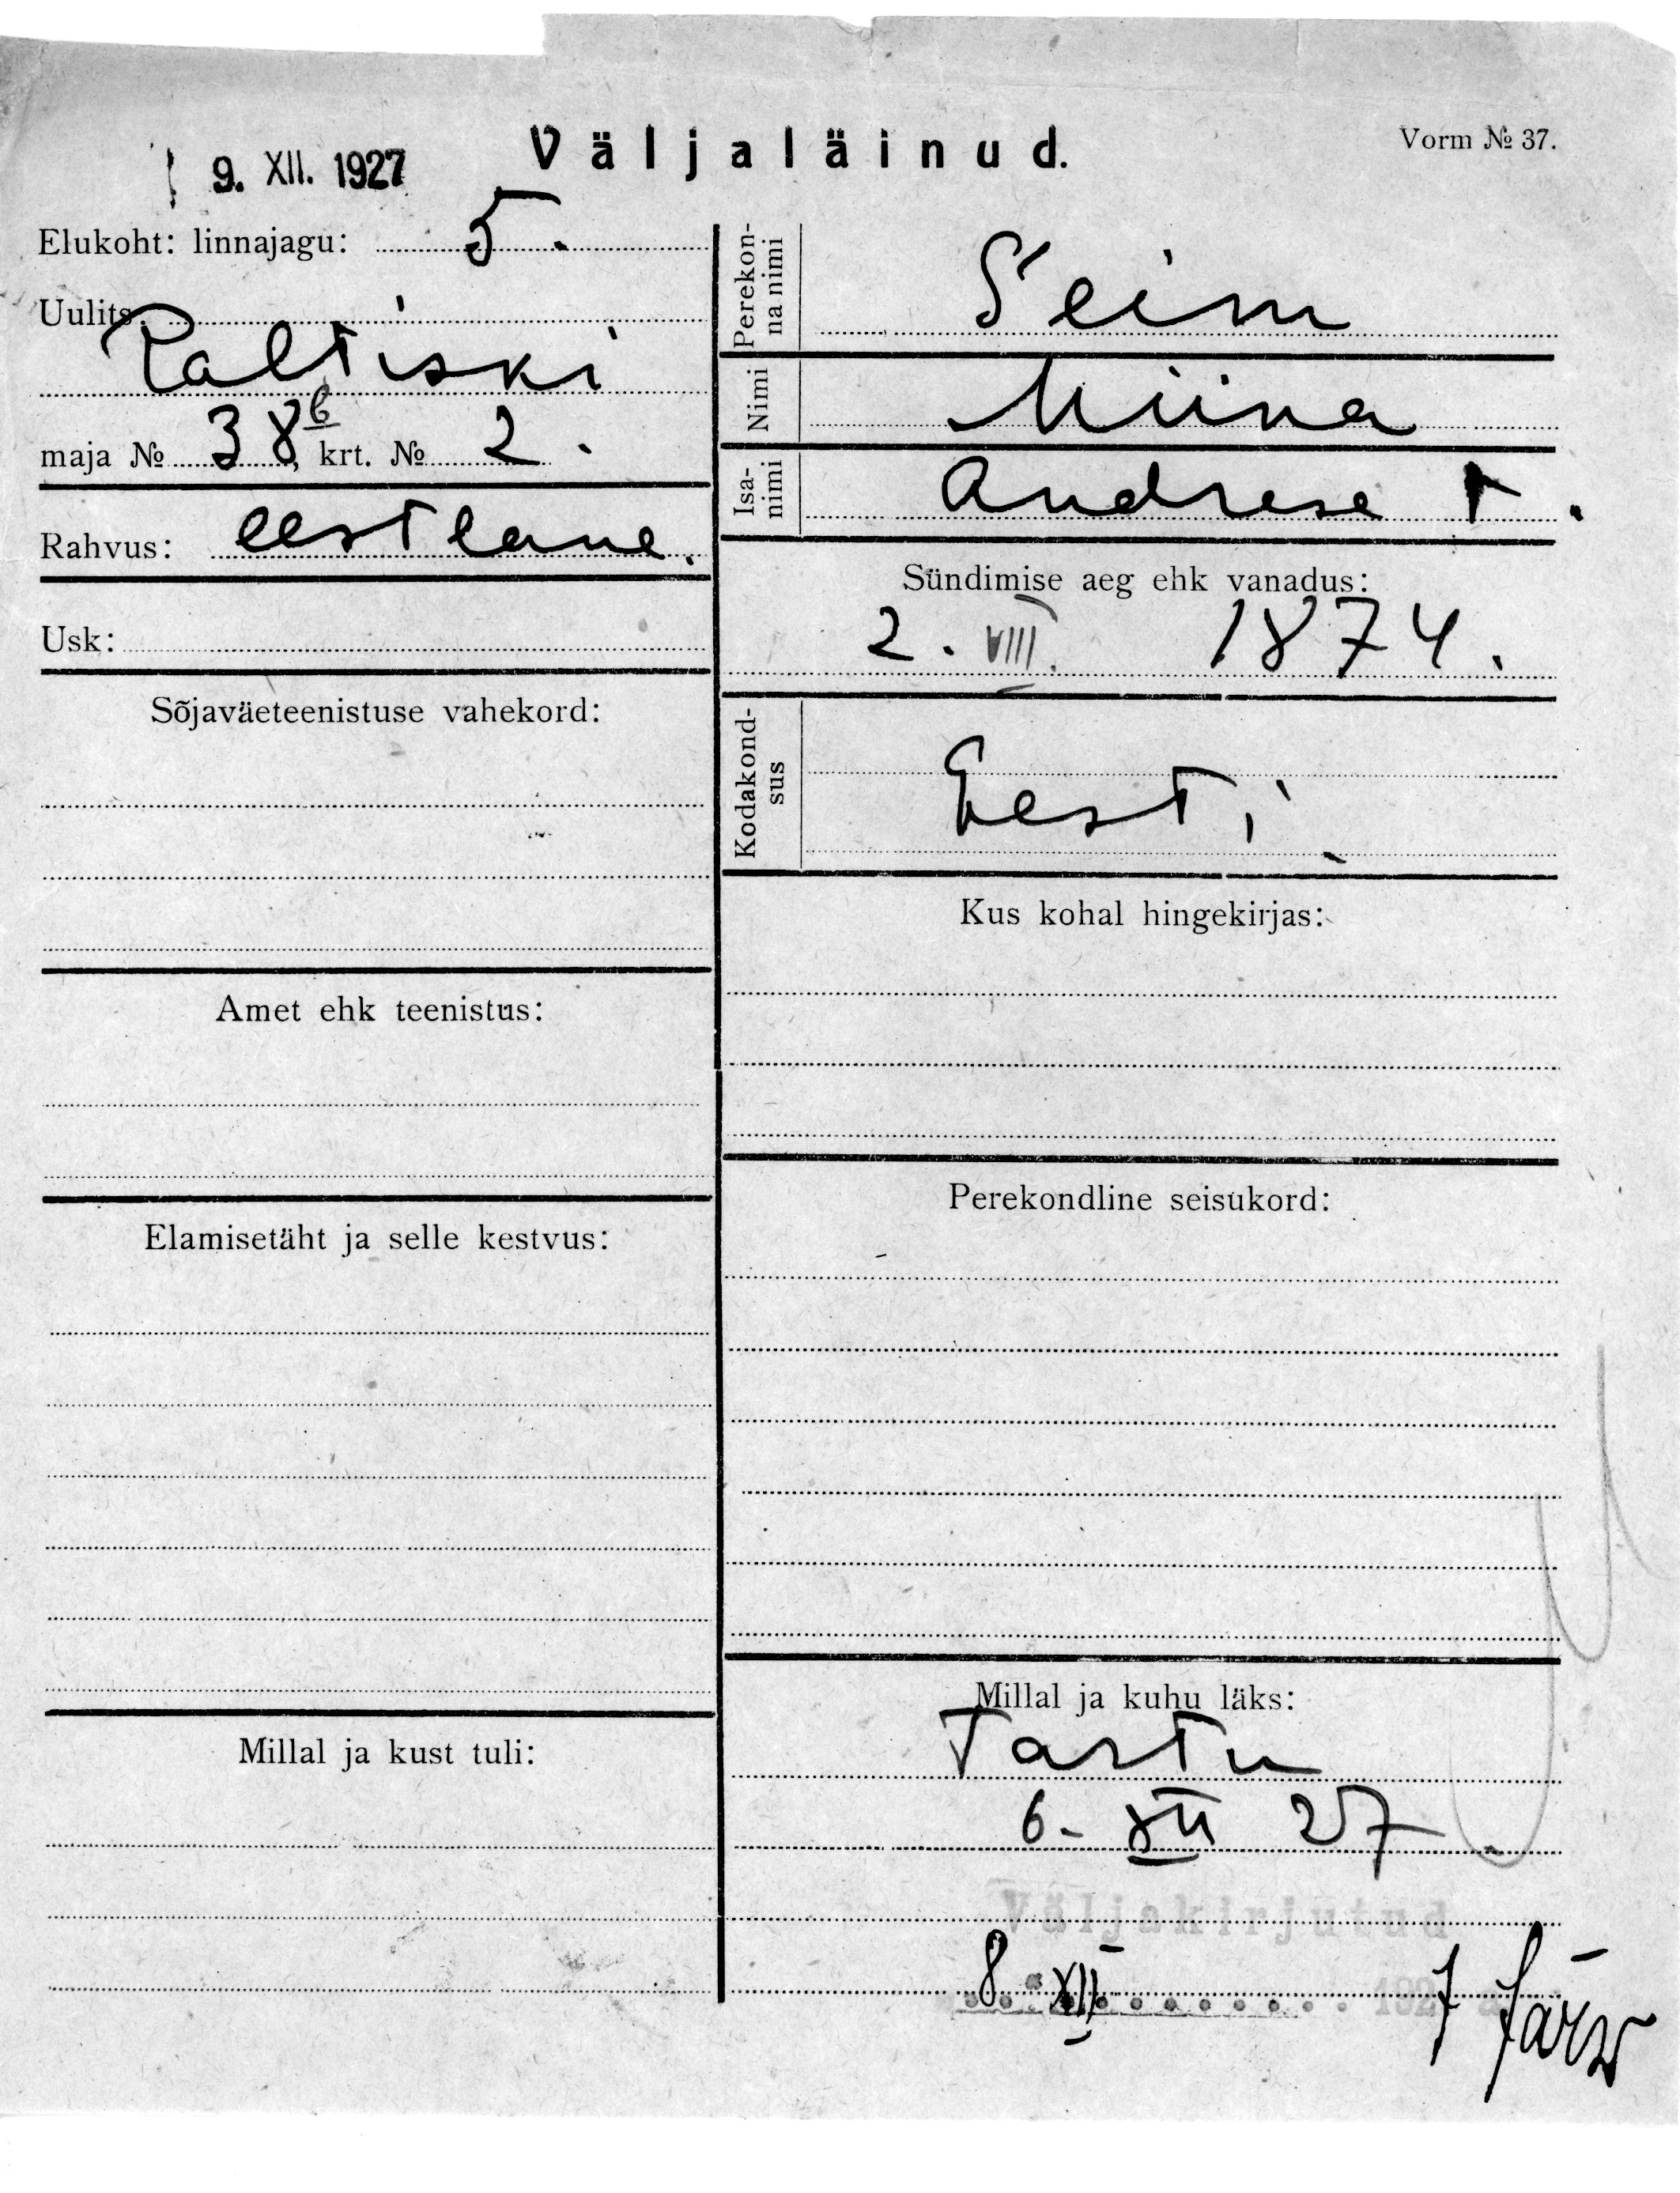 Väljaläinud.
Vorm № 37.
9. XII. 1927
Elukoht: linnajagu: 5.
Uulits:
Paltiski
maja № 38b, krt. № 2.
Rahvus: eestlane.
Usk:
Sõjaväeteenistuse vahekord:
Amet ehk teenistus:
Elamisetäht ja selle kestvus:
Millal ja kust tuli:
Perekon-
na nimi
Seim
Nimi Miina
Isa-
nimi
Andrese t.
Sündimise aeg ehk vanadus:
2. VIII. 1874.
Kodakond-
sus
Eesti.
Kus kohal hingekirjas:
Perekondline seisukord:
Millal ja kuhu läks:
Tartu
6. XII 27
Väljakirjutud
8. XII 1927 a.
Järw